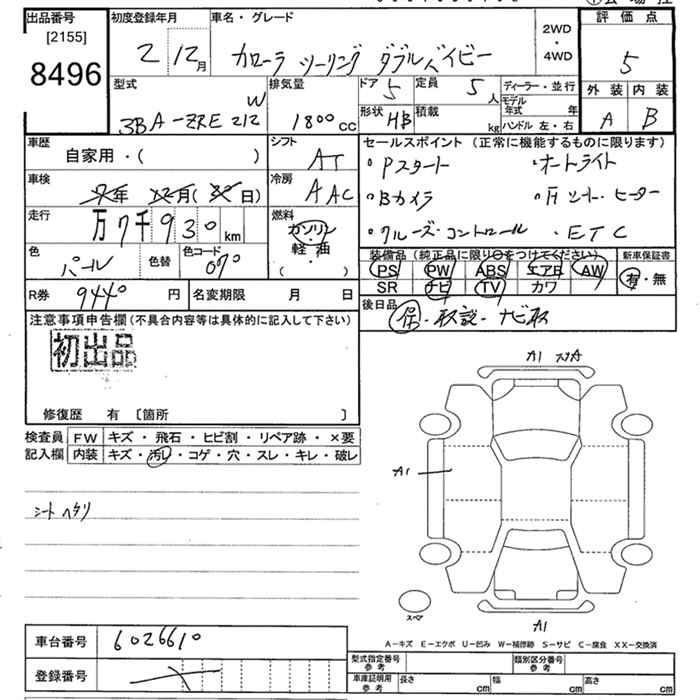 出品番号
[2155]
8496
初度登録年月
2 12月
車名・グレード
カローラ ツーリング ダブルバイビー
2WD
・
4WD
評価点
5
外装 内装
A B
型式
3BA-ZRE212 W
排気量
1800 cc
ドア 5
定員 5 人
形状 HB
積載 kg
ディーラー・並行
モデル年式 年
ハンドル 左・右
車歴
自家用・( )
シフト
AT
車検
年 月( 日)
冷房
A AC
走行
万 7千 9 3 0 km
燃料
ガソリン
軽・油
( )
色
パール
色替
色コード
070
R券 9440 円
名変期限 月 日
セールスポイント (正常に機能するものに限ります)
・Pスタート ・オートライト
・Bカメラ ・Hシート・ヒーター
・クルーズ・コントロール ・ETC
装備品 (純正品に限り○をつけてください)
PS PW ABS エアB AW
SR ナビ TV カワ
新車保証書
有・無
後日品
保・取説・ナビ取
注意事項申告欄 (不具合内容等は具体的に記入して下さい)
初出品
修復歴 有 〔箇所 〕
検査員記入欄
FW キズ・飛石・ヒビ割・リペア跡・×要
内装 キズ・汚レ・コゲ・穴・スレ・キレ・破レ
シートヘタリ
A1 スリA
A1
スペア
A1
A-キズ E-エクボ U-凹み W-補修跡 S-サビ C-腐食 XX-交換済
車台番号 6026610
登録番号
型式指定番号 参考
類別区分番号 参考
車庫証明用 参考
長さ cm 幅 cm 高さ cm